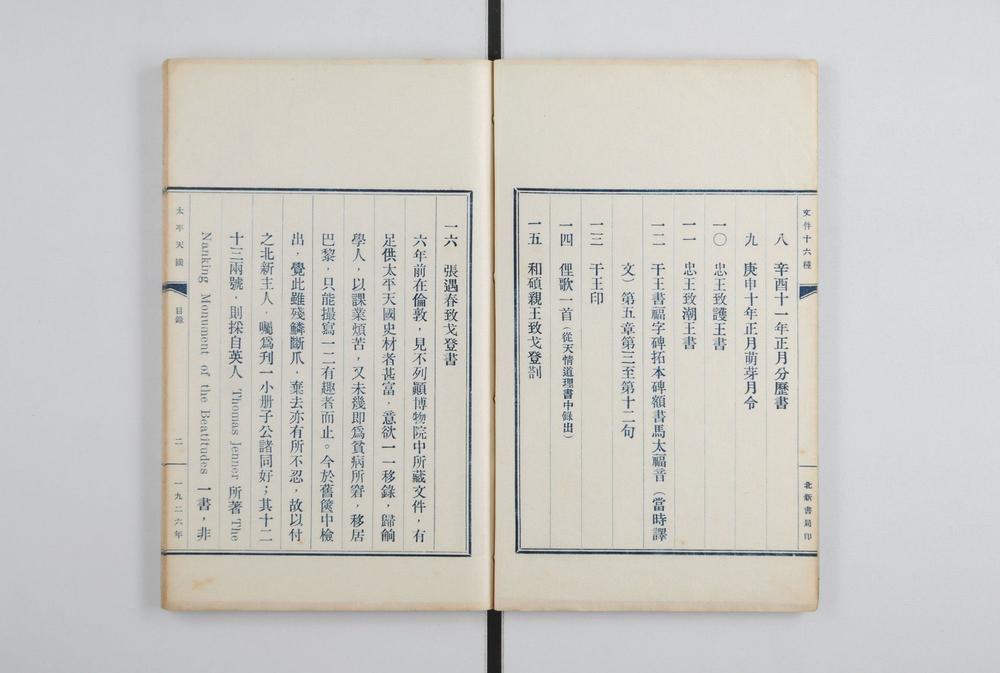 文件十六種
北新書局印
八　辛酉十一年正月分歷書
九　庚申十年正月萌芽月令
一〇　忠王致護王書
一一　忠王致潮王書
一二　干王書福字碑拓本碑額書馬太福音（當時譯
文）第五章第三至第十二句
一三　干王印
一四　俚歌一首（從天情道理書中錄出）
一五　和碩親王致戈登劄
一六　張遇春致戈登書
六年前在倫敦，見不列顛博物院中所藏文件，有
足供太平天國史材者甚富，意欲一一移錄，歸餉
學人，以課業煩苦，又未幾即爲貧病所窘，移居
巴黎，只能撮寫一二有趣者而止。今於舊篋中檢
出，覺此雖殘鱗斷爪，棄去亦有所不忍，故以付
之北新主人，囑爲刋一小册子公諸同好；其十二
十三兩號，則採自英人 Thomas Jenner 所著 The
Nanking Monument of the Beatitudes 一書，非
太平天國
目錄
二
一九二六年